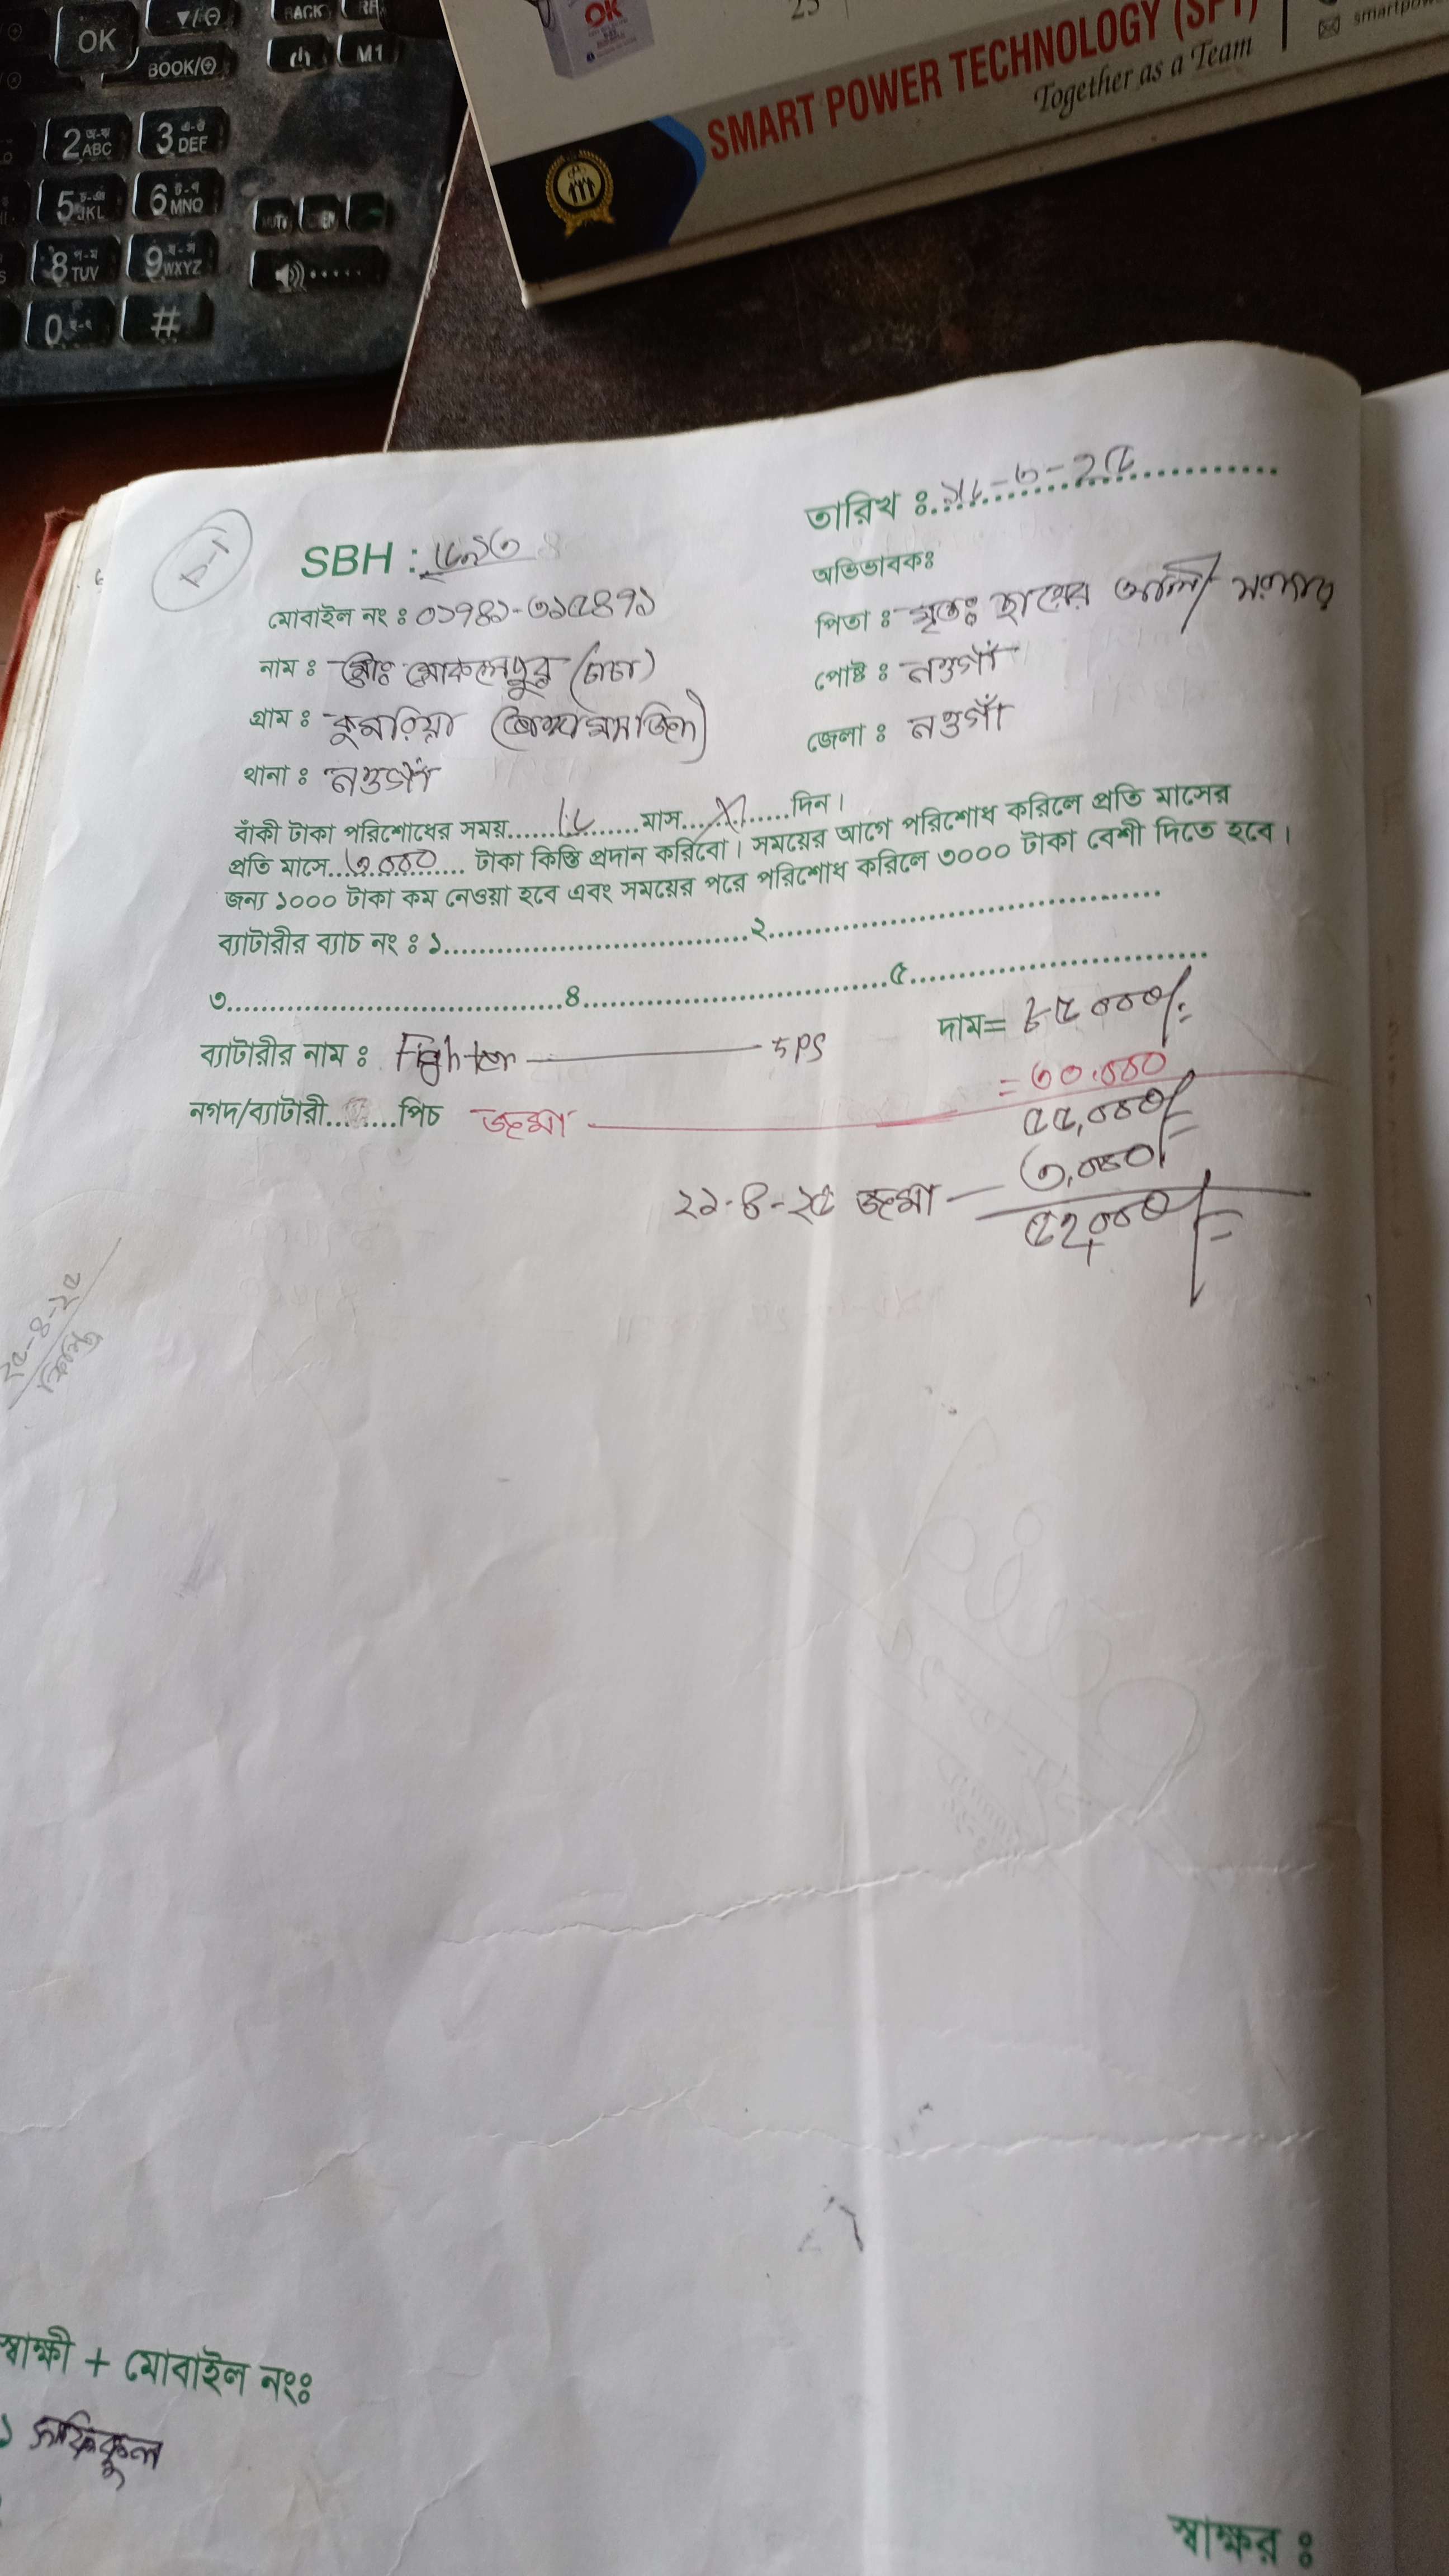 OK
BACK
BOOK/
M1
2 ABC
3 DEF
5 JKL
6 MNO
8 TUV
9 WXYZ
0
#
OK
25
SMART POWER TECHNOLOGY (SPT)
Together as a Team
তারিখ ঃ
SBH :
অভিভাবকঃ
মোবাইল নং ঃ ০১৭৪১-৩১৫৪৭১
পিতা ঃ মৃতঃ ছায়ের আলী সরদার
নাম ঃ মোঃ
পোষ্ট ঃ নওগাঁ
গ্রাম ঃ কুমরিয়া
জেলা ঃ নওগাঁ
থানা ঃ নওগাঁ
বাঁকী টাকা পরিশোধের সময়..................মাস..............দিন।
প্রতি মাসে ৩,০০০ টাকা কিস্তি প্রদান করিবো। সময়ের আগে পরিশোধ করিলে প্রতি মাসের
জন্য ১০০০ টাকা কম নেওয়া হবে এবং সময়ের পরে পরিশোধ করিলে ৩০০০ টাকা বেশী দিতে হবে।
ব্যাটারীর ব্যাচ নং ঃ ১..................................২..................................
৩..................................৪..................................৫..................................
ব্যাটারীর নাম ঃ Fighter 5ps
দাম= ৮৫০০০/=
নগদ/ব্যাটারী.........পিচ জমা = ৩০,০০০
৫৫,০০০/=
২১-৪-২৫ জমা — ৩,০০০/=
৫২,০০০/=
২৫-৪-২৫
কিস্তি
স্বাক্ষী + মোবাইল নংঃ
১ সফিকুল
স্বাক্ষর ঃ